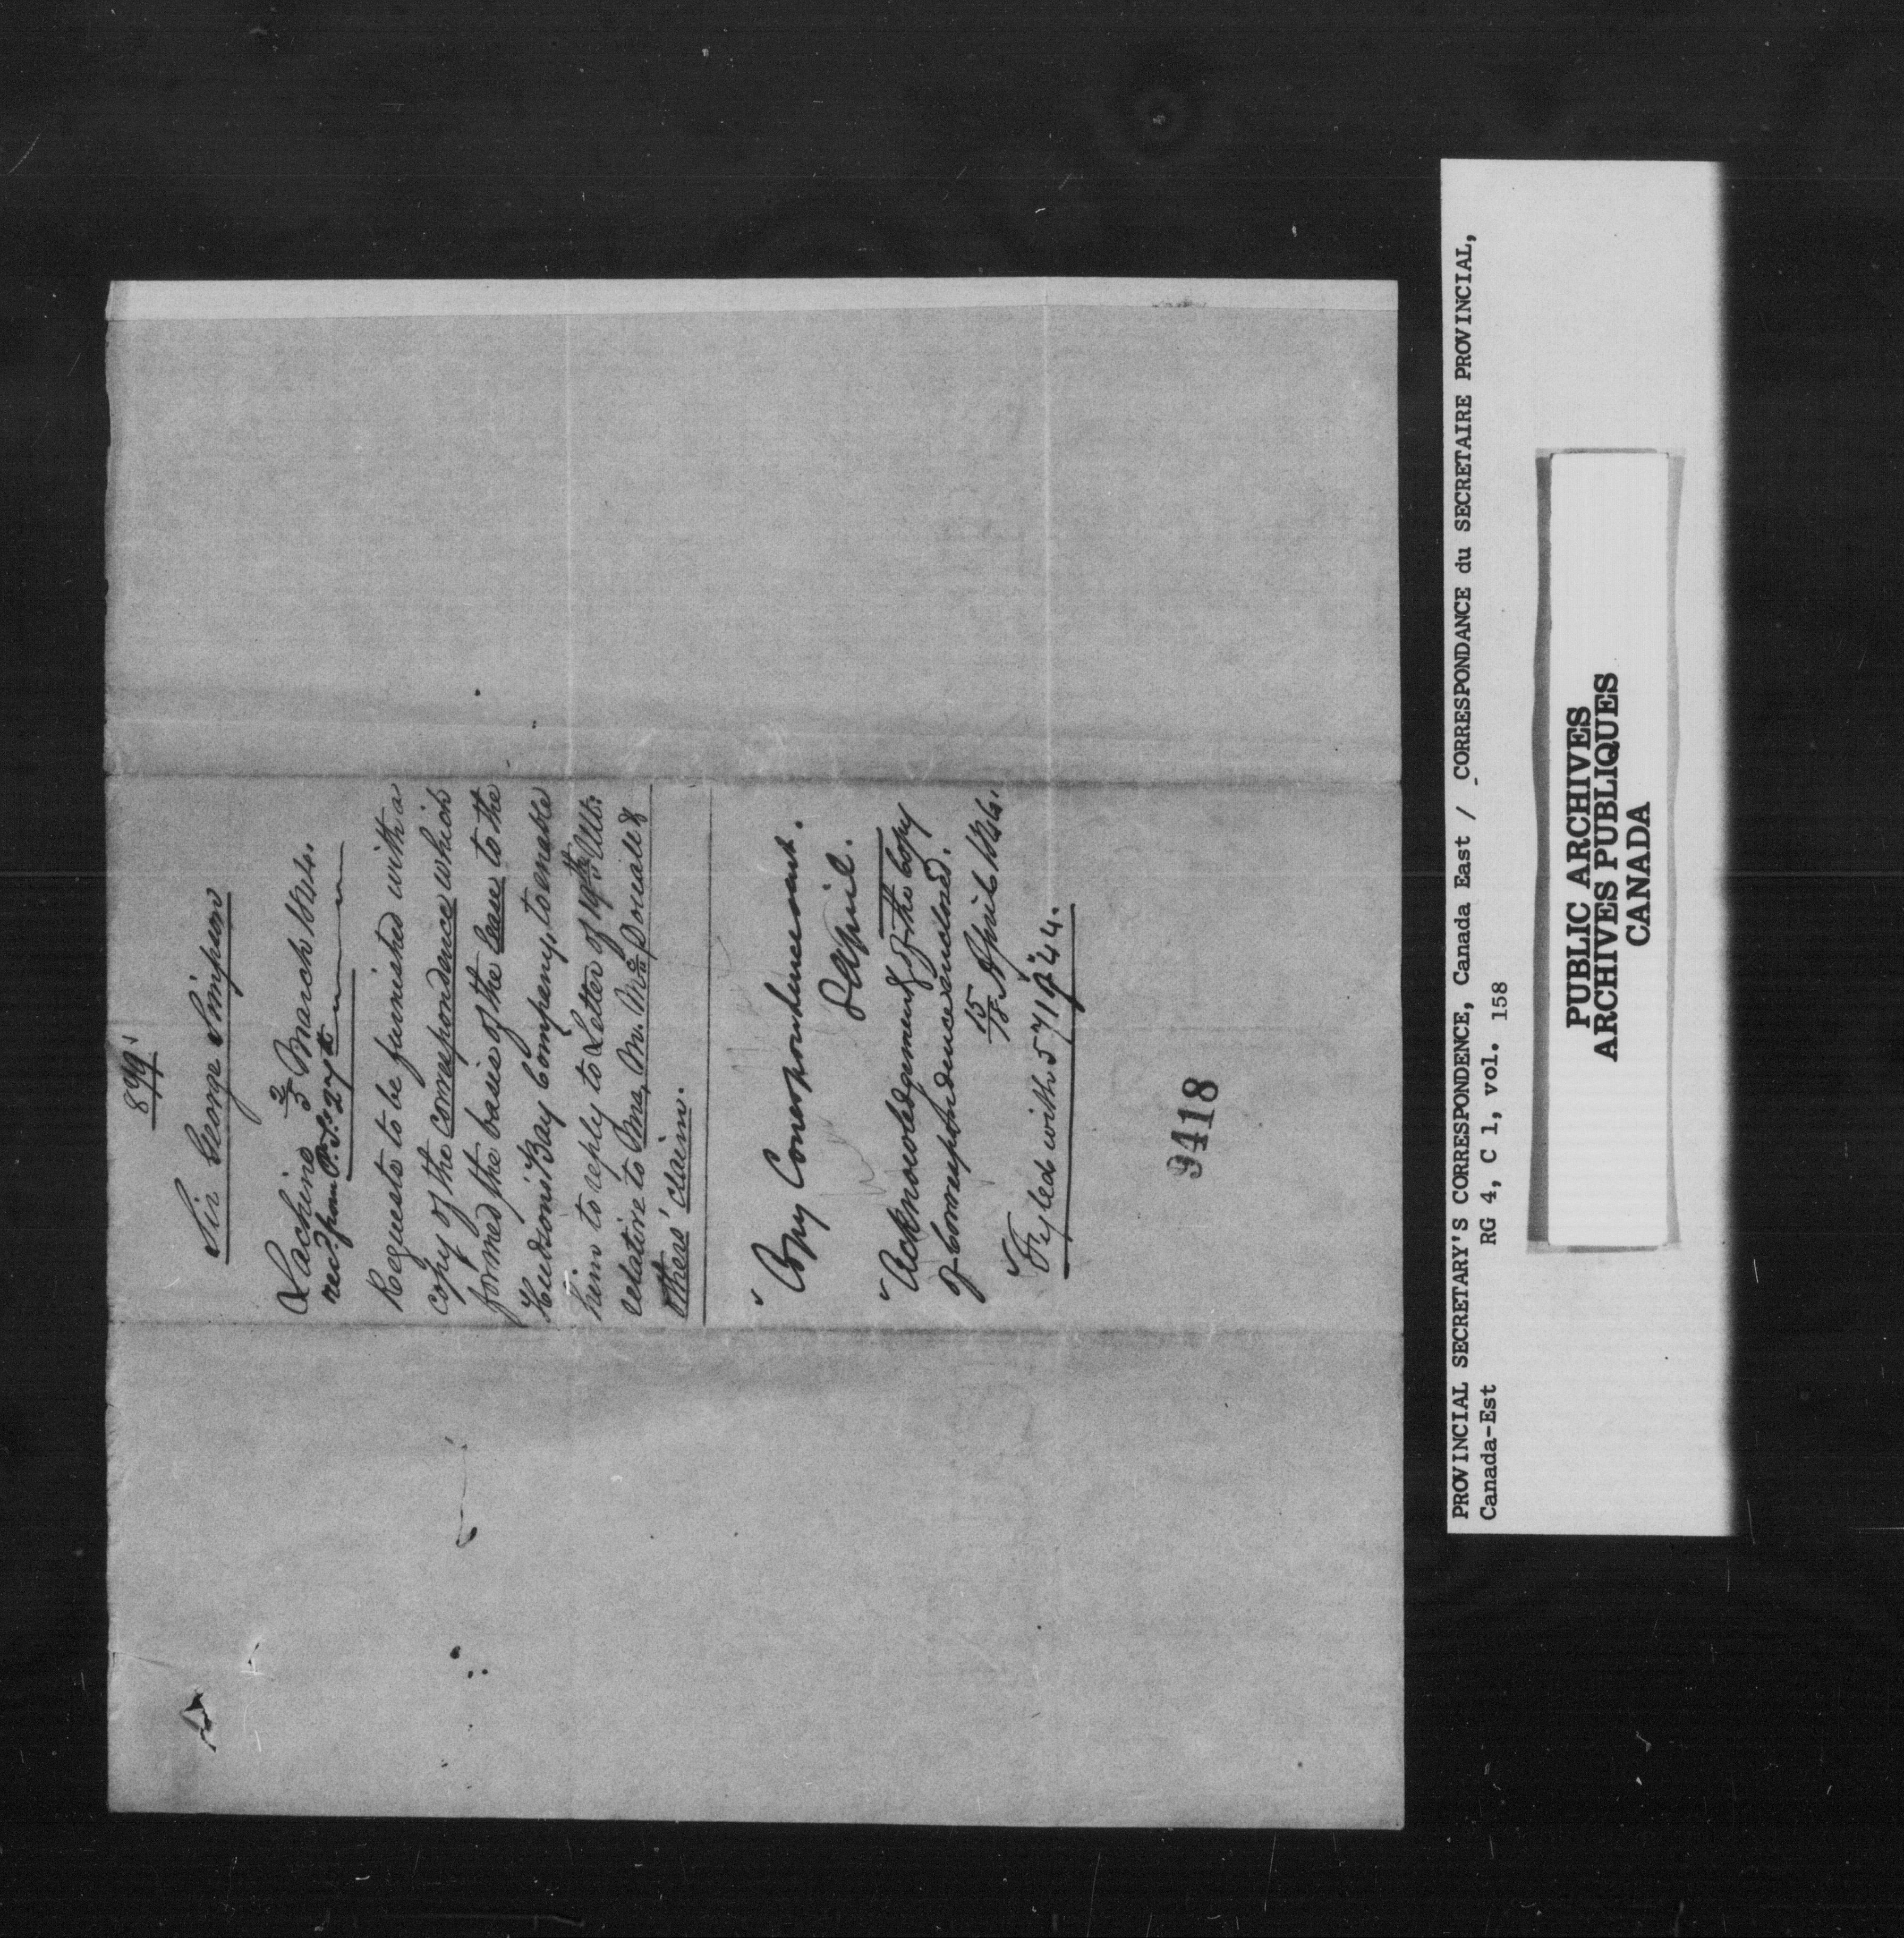 899
Sir George Simpson
Lachine March 1844.
rec.d from P. S. 27th
Requests to be furnished with a
copy of the correspondence which
formed the basis of the lease to the
Hudsons' Bay Company, to enable
him to reply to Letter of 19th Ulto.
relative to Mrs. M. McDouall &
others' claim.
Copy Correspondence.
April.
Acknowledgment of the copy
of correspondence enclosed.
15/18 April 1844.
Fyled with 571
9418
PROVINCIAL SECRETARY'S CORRESPONDENCE, Canada East / CORRESPONDANCE du SECRETAIRE PROVINCIAL,
Canada-Est RG 4, C 1, vol. 158
PUBLIC ARCHIVES
ARCHIVES PUBLIQUES
CANADA